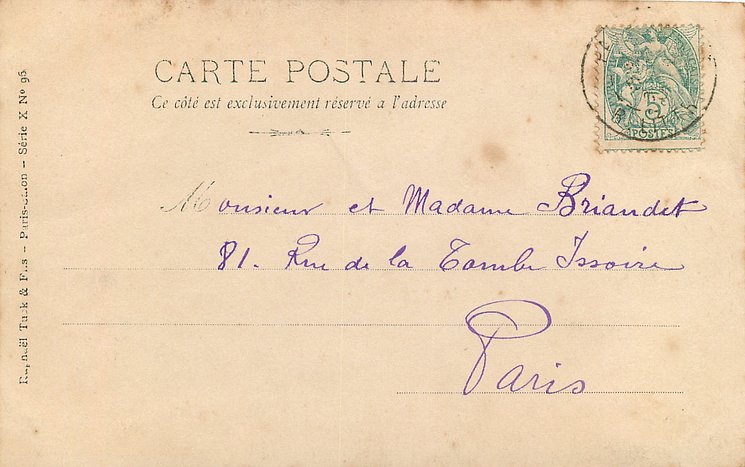 CARTE POSTALE
Ce côté est exclusivement réservé a l'adresse
Monsieur et Madame Briandet
81. Rue de la Tombe Issoire
Paris
Raphaël Tuck & Fils – Paris-Salon – Série X Nº 96
5
POSTES